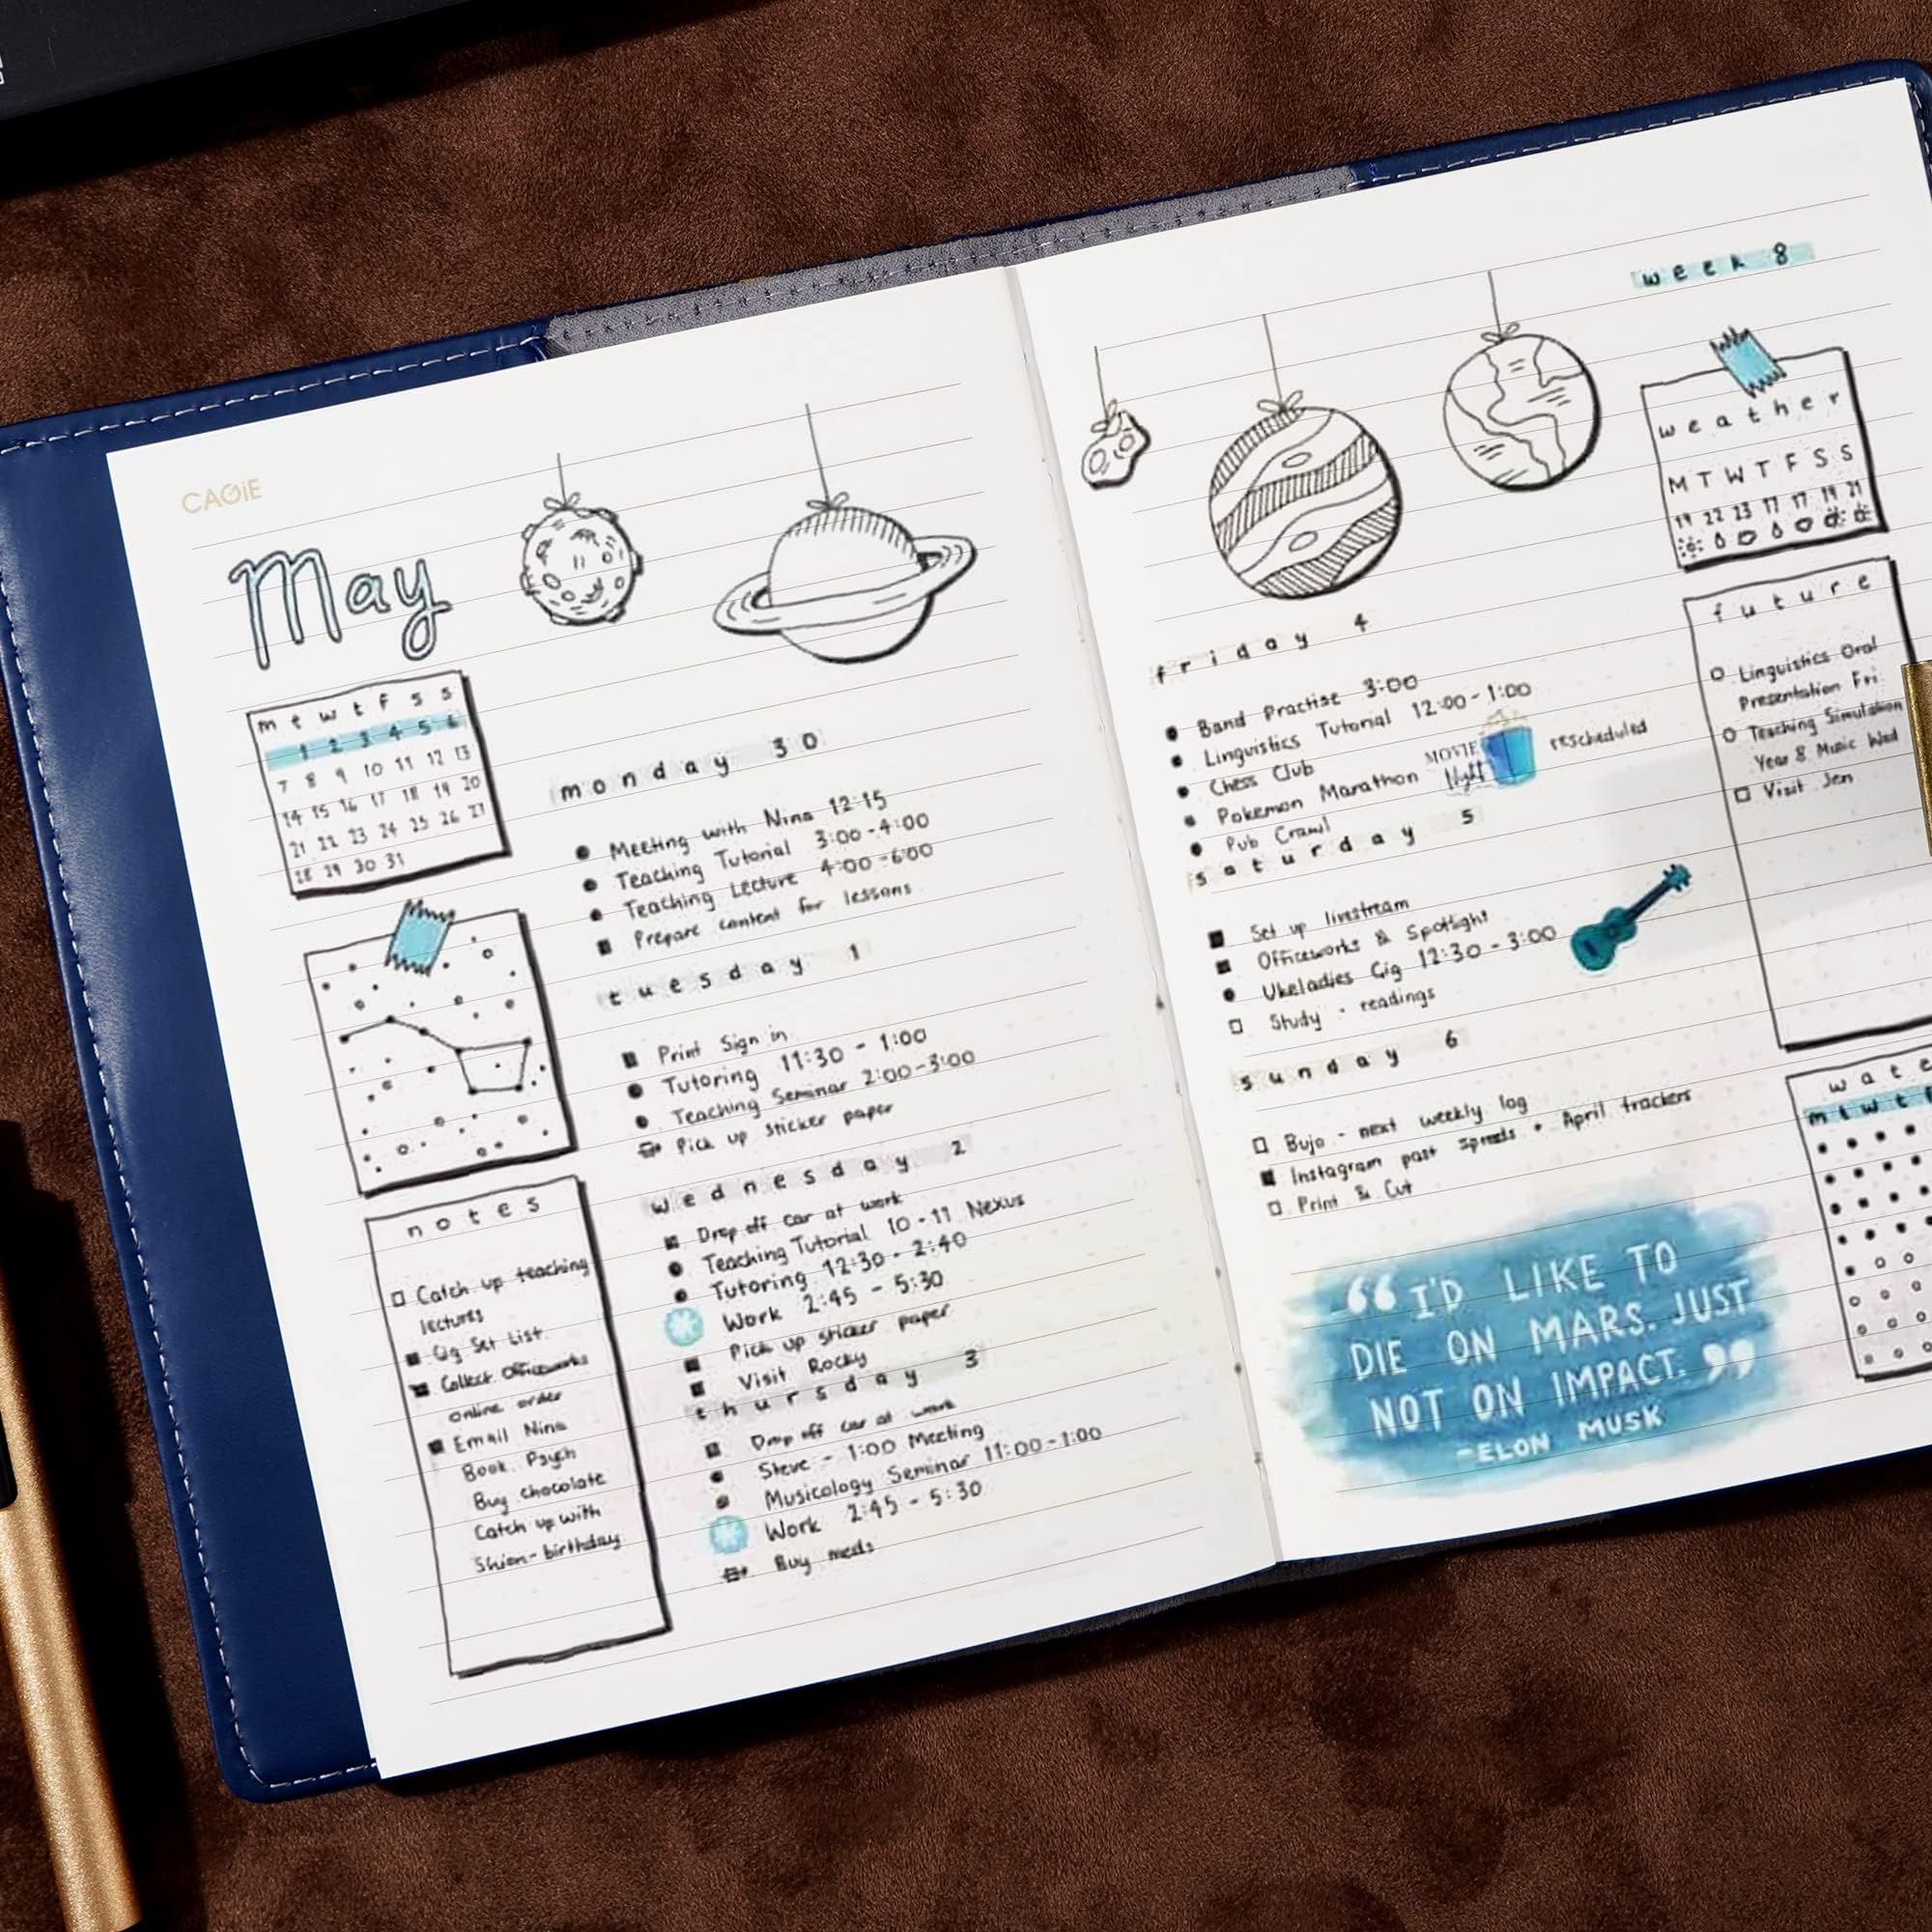 CAGiE
May
m t w t f s s
1 2 3 4 5 6
7 8 9 10 11 12 13
14 15 16 17 18 19 20
21 22 23 24 25 26 27
28 29 30 31
notes
Catch up teaching
lectures
Gig Set List
Collect Officeworks
online order
Email Nina
Book Psych
Buy chocolate
Catch up with
Shion - birthday
monday 30
Meeting with Nina 12:15
Teaching Tutorial 3:00-4:00
Teaching Lecture 4:00-6:00
Prepare content for lessons
tuesday 1
Print Sign in
Tutoring 11:30 - 1:00
Teaching Seminar 2:00-3:00
Pick up sticker paper
wednesday 2
Drop off car at work
Teaching Tutorial 10-11 Nexus
Tutoring 12:30 - 2:40
Work 2:45 - 5:30
Pick up sticker paper
Visit Rocky
thursday 3
Drop off car at work
Steve - 1:00 Meeting
Musicology Seminar 11:00-1:00
Work 2:45 - 5:30
Buy meds
week 8
friday 4
Band Practise 3:00
Linguistics Tutorial 12:00-1:00
Chess Club
Pokemon Marathon MOVIE Night rescheduled
Pub Crawl
saturday 5
Set up livestream
Officeworks & Spotlight
Ukeladies Gig 12:30 - 3:00
Study - readings
sunday 6
Bujo - next weekly log
Instagram past spreads + April trackers
Print & Cut
“I'D LIKE TO
DIE ON MARS. JUST
NOT ON IMPACT.”
-ELON MUSK
weather
M T W T F S S
19 22 23 17 17 19 21
future
Linguistics Oral
Presentation Fri
Teaching Simulation
Year 8 Music Wed
Visit Jen
wate
m t w t f